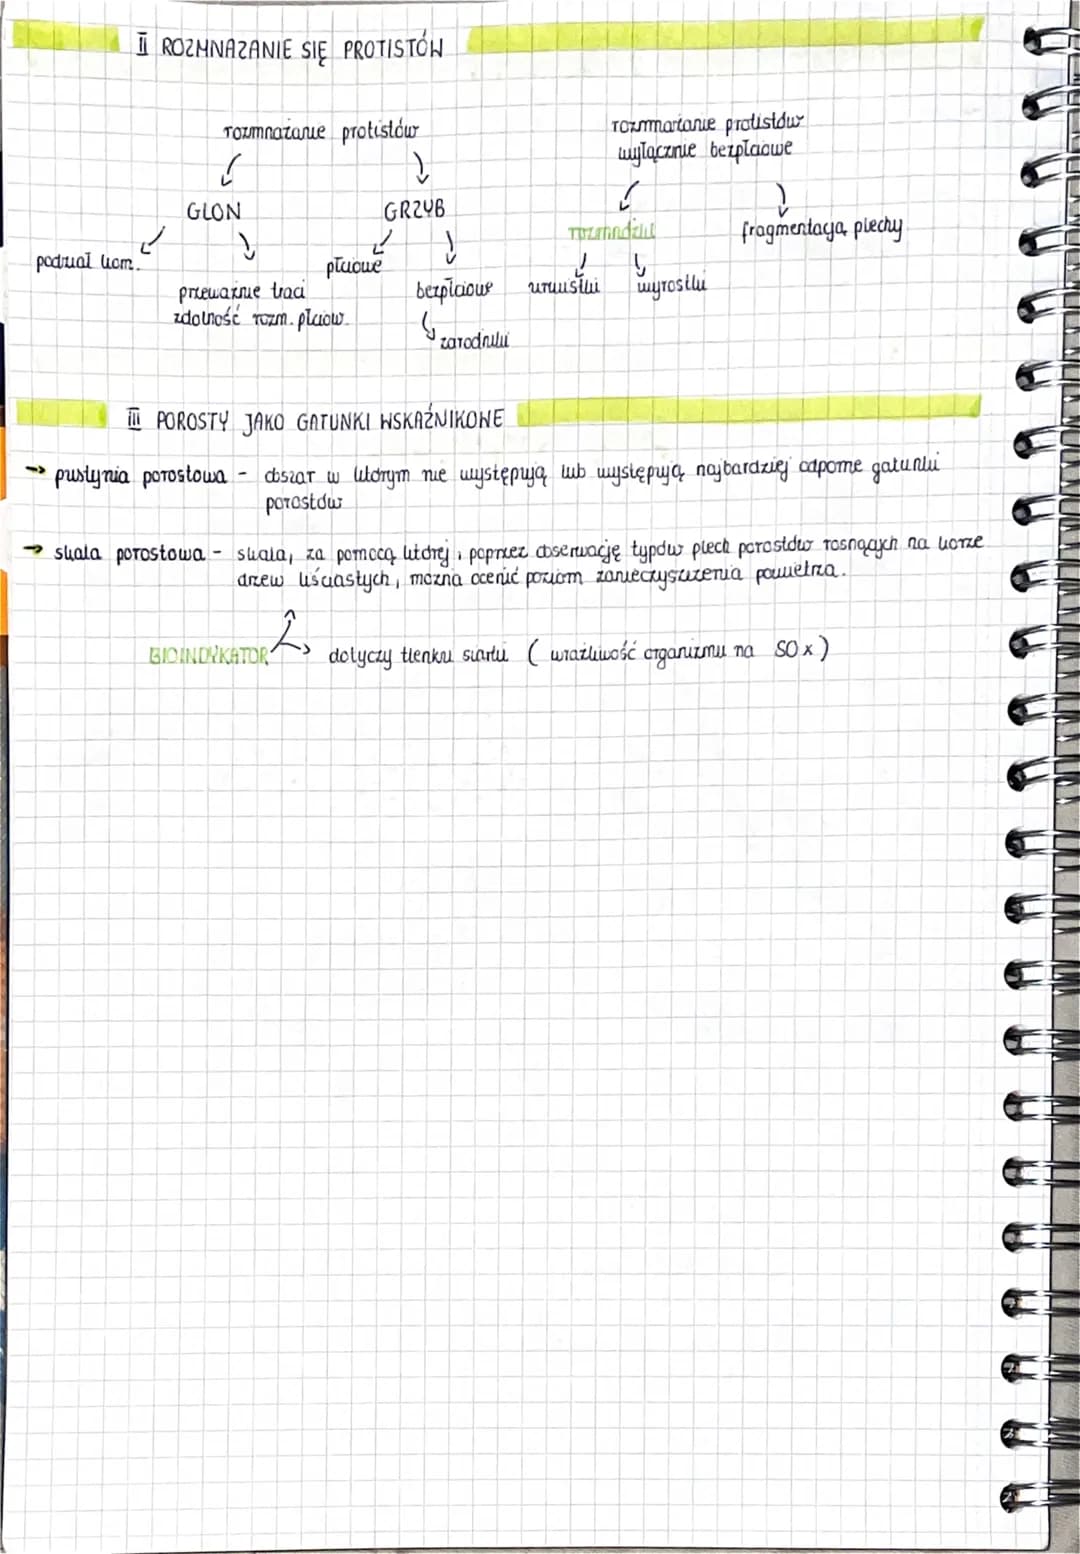 II ROZMNAŻANIE SIĘ PROTISTÓW
rozmnażanie protistów
GLON
GRZYB
podział kom.
przeważnie traci
zdolność rozm. płciow.
płciowe
bezpłciowe
zarodniki
rozmnażanie protistów
wyłącznie bezpłciowe
rozmnóżki
fragmentacja plechy
urwistki
wyrostki
III POROSTY JAKO GATUNKI WSKAŹNIKOWE
→ pustynia porostowa - obszar w którym nie występują lub występują najbardziej odporne gatunki
porostów
→ skala porostowa - skala, za pomocą której i poprzez obserwację typów plech porostów rosnących na korze
drzew liściastych, można ocenić poziom zanieczyszczenia powietrza.
BIOINDYKATOR
dotyczy tlenku siarki ( wrażliwość organizmu na SOx )